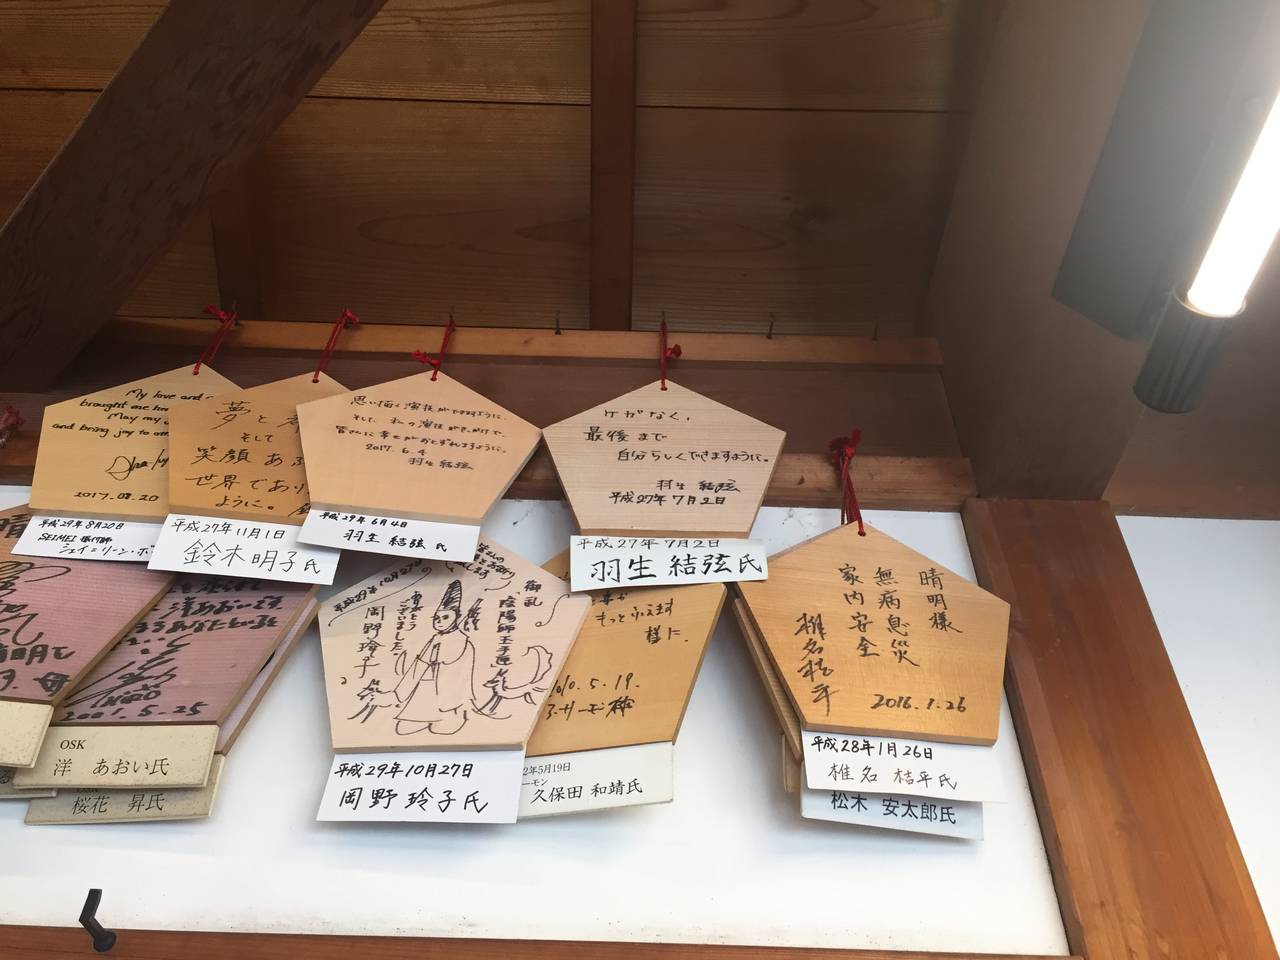 My love and
brought me
May my
and bring joy to
2017.08.20
平成29年8月20日
SEIMEI 振付師
シェイ=リーン・ボ
夢と
そして
笑顔あふ
世界であり
ように。
平成27年11月1日
鈴木明子氏
思い描く演技ができますように。
そして、私の演技がきっかけで、
皆さんに幸せがおとずれますように。
2017.6.4
羽生結弦
平成29年6月4日
羽生 結弦 氏
ケガなく、
最後まで
自分らしくできますように。
羽生 結弦
平成27年7月2日
平成27年7月2日
羽生 結弦氏
晴明様
無病息災
家内安全
椎名桔平
2016.1.26
平成28年1月26日
椎名 桔平氏
松木 安太郎氏
御礼
陰陽師玉手匣
ありがとう
ございました。
岡野玲子
平成29年10月27日
平成29年10月27日
岡野 玲子氏
もっとふえます
様に.
010.5.19.
2年5月19日
ーモン
久保田 和靖氏
2001.5.25
OSK
洋 あおい氏
桜花 昇氏